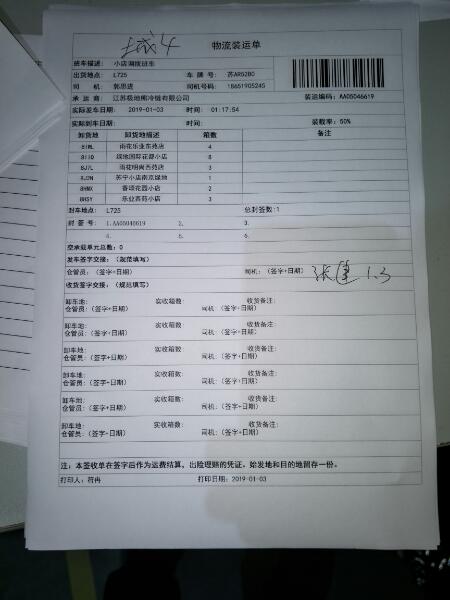 城4
物流装运单
班车描述: 小店湖熟班车
出货地点: L725 车 牌 号: 苏AR52B0
司 机: 郭思进 司机号码: 18651905245
承 运 商: 江苏极地熊冷链有限公司 装运编码: AA05046619
实际发车日期: 2019-01-03 时间: 01:17:54
实际到车日期: 时间: 装载率: 50%
卸货地 卸货地描述 箱数 备注
8IML 雨花乐业东苑店 4
8IIO 绿地国际花都小店 8
8J7L 雨花明尚西苑店 3
8JDN 苏宁小店南京绿地 1
8HMX 香颂花园小店 2
8HSY 乐业西苑小店 3
封车地点: L725 总封签数:1
封 签 号: 1.AA05046619 2. 3.
4. 5. 6.
空承载单元总数: 0
发车签字交接: (规范填写)
仓管员: (签字+日期) 司机: (签字+日期) 1.3
收货签字交接: (规范填写)
卸车地: 实收箱数: 收货备注:
仓管员: (签字+日期) 司机: (签字+日期)
卸车地: 实收箱数: 收货备注:
仓管员: (签字+日期) 司机: (签字+日期)
卸车地: 实收箱数: 收货备注:
仓管员: (签字+日期) 司机: (签字+日期)
卸车地: 实收箱数: 收货备注:
仓管员: (签字+日期) 司机: (签字+日期)
卸车地: 实收箱数: 收货备注:
仓管员: (签字+日期) 司机: (签字+日期)
卸车地: 实收箱数: 收货备注:
仓管员: (签字+日期) 司机: (签字+日期)
注: 本签收单在签字后作为运费结算, 出险理赔的凭证, 始发地和目的地留存一份。
打印人: 符冉 打印日期: 2019-01-03